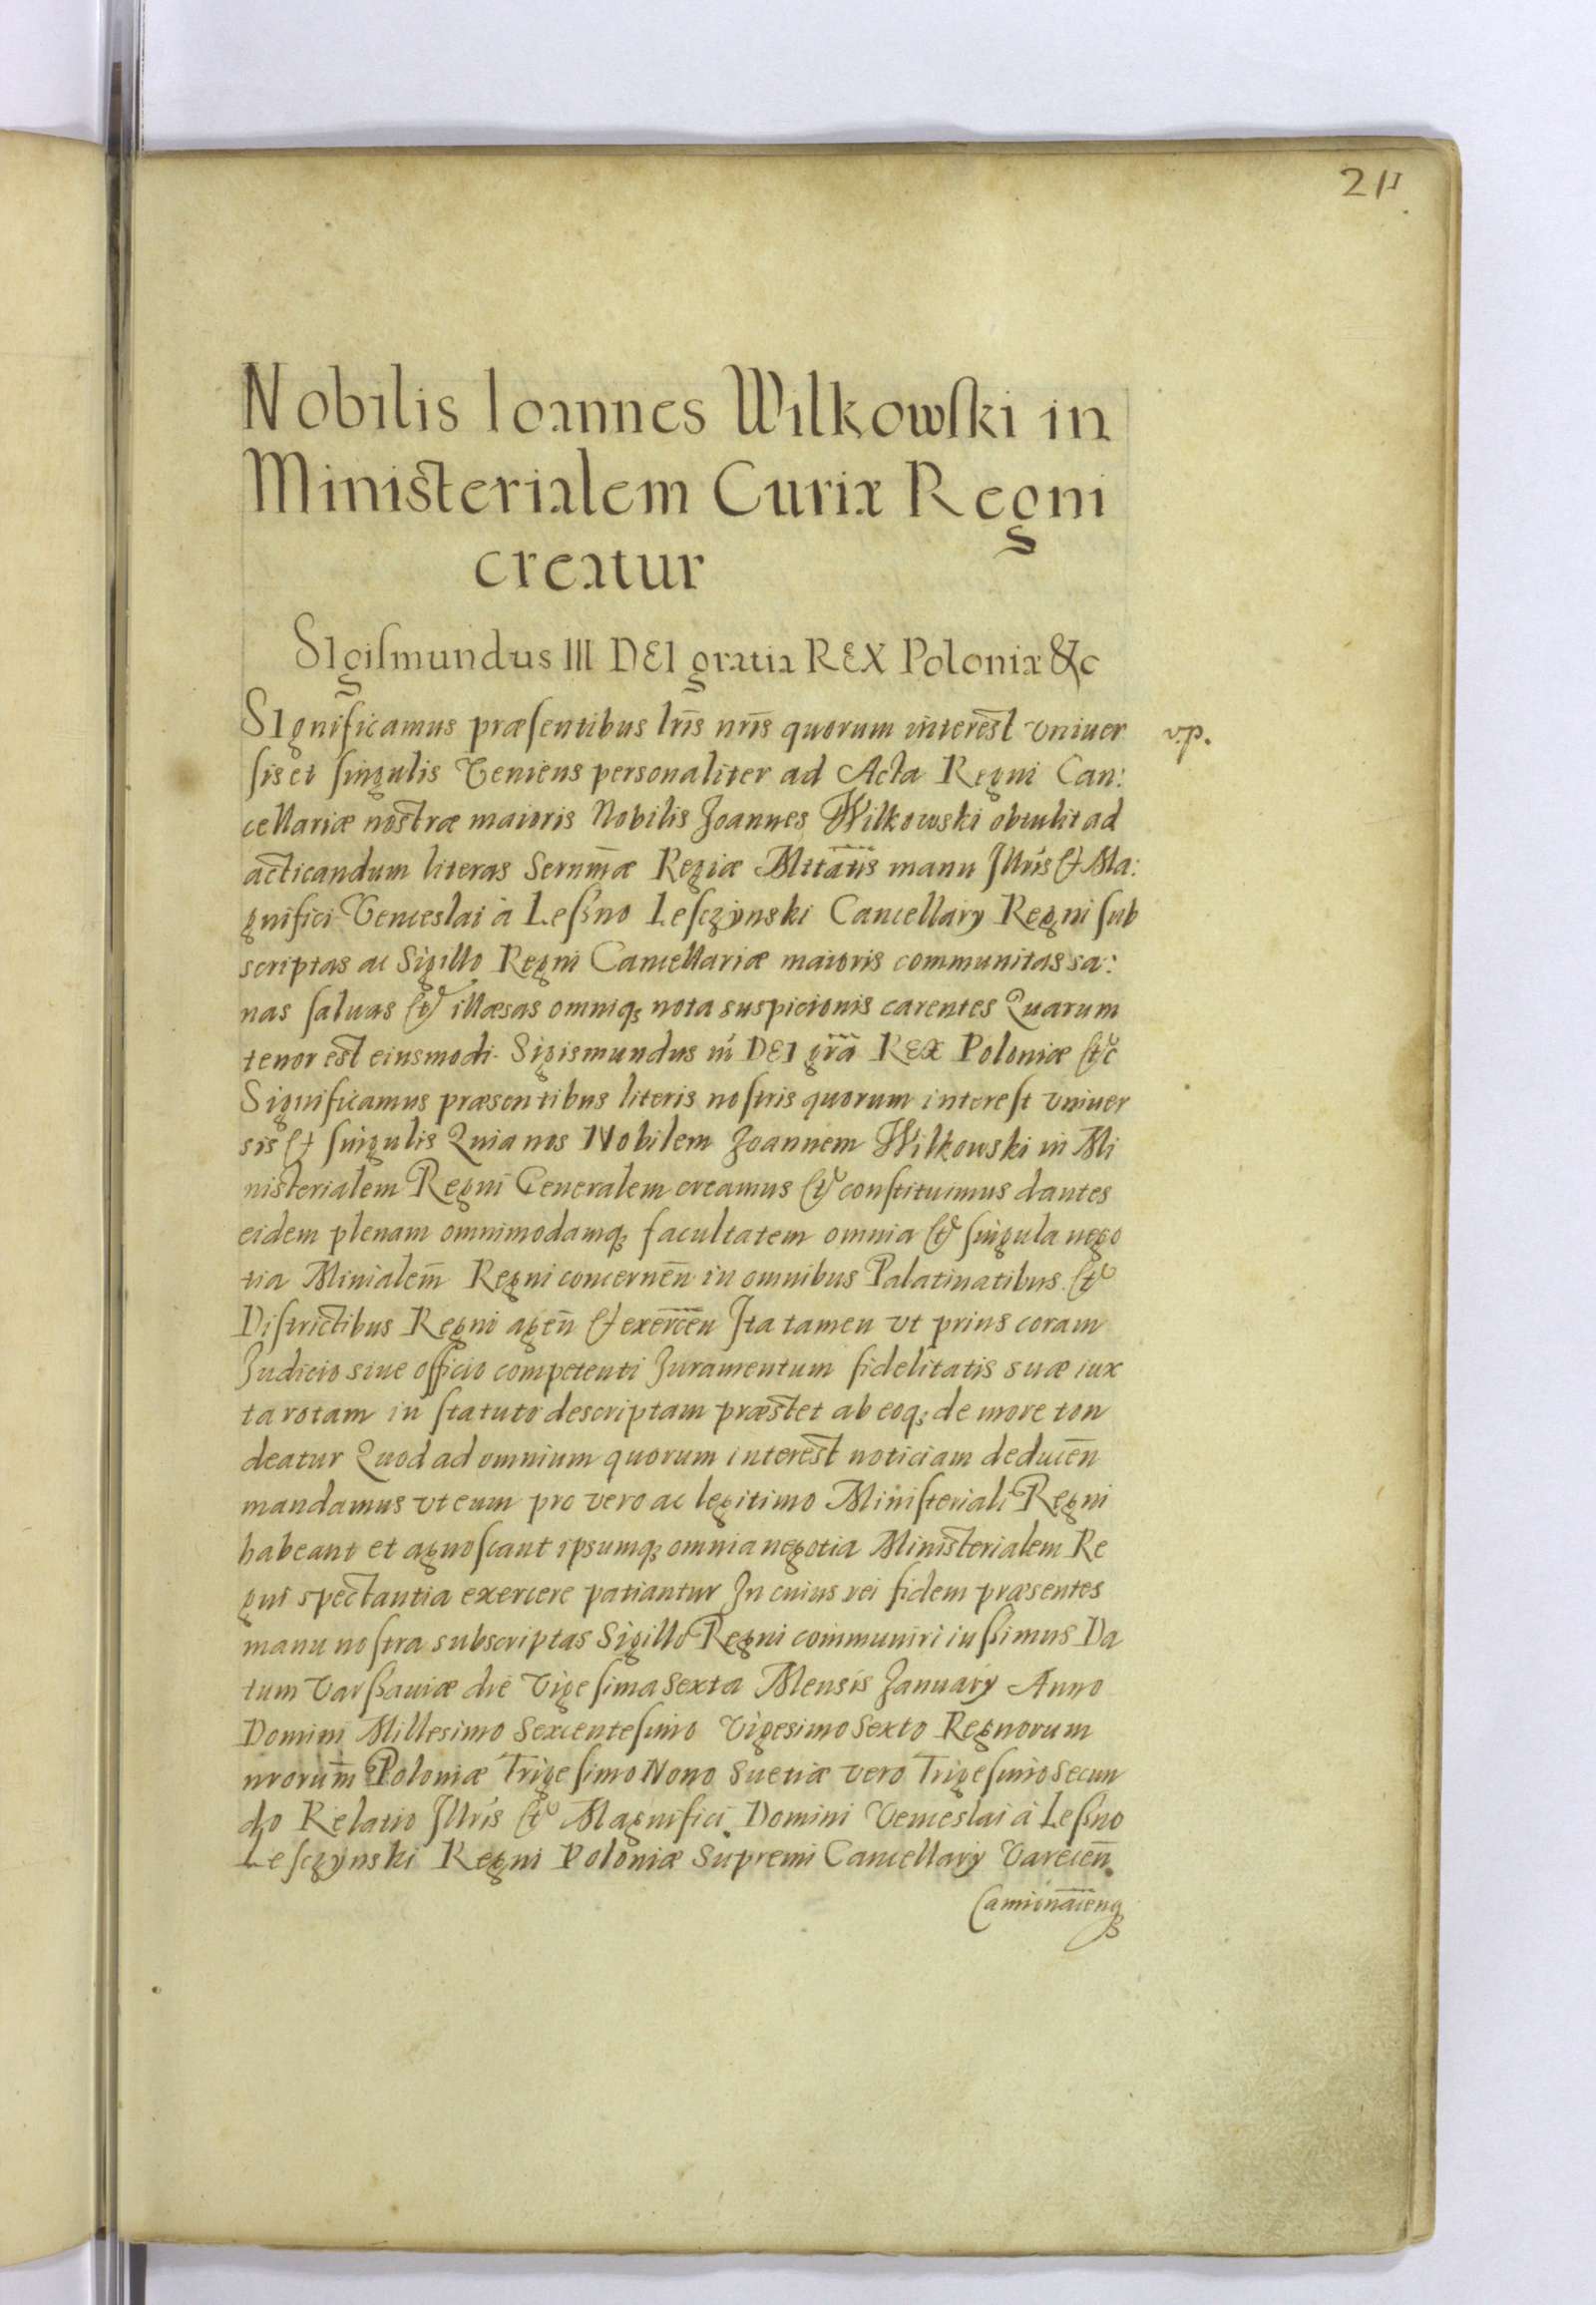 Nobilis Ioannes Wilkowſki in
Ministerialem Curiæ Regni
creatur
SIgiſmundus III DEI gratia REX Poloniæ &c
SIgnificamus præſentibus lrīs nrīs quorum interest vniuer
v.p.
ſis et ſingulis Veniens personaliter ad Acta Regni Can:
cellariæ nostræ maioris Nobilis Joannes Wilkowski obtulit ad
acticandum literas Sernm̄æ Regiæ Mttātis manu Jllrís & Ma:
gnifici Venceslai à Leſsno Leſczÿnski Cancellarÿ Regni ſub
scriptas ac Sigillo Regni Cancellariæ maioris communitas sa:
nas ſaluas & illæsas omniq; nota suspicionis carentes Quarum
tenor est eiusmodi. Sigismundus iii DEI gr̄a REX Poloniæ &c
Significamus præsentibus literis noſtris quorum intereſt vniuer
sis & ſingulis Quia nos Nobilem Joannem Wilkowski in Mi
nisterialem Regni Generalem creamus & conſtituimus dantes
eidem plenam omnimodamq; facultatem omnia & ſingula nego
tia Minialem̄ Regni concernen̄ in omnibus Palatinatibus &
Diſtrictibus Regni agen̄ & exercen̄ Jta tamen vt prius coram
Judicio siue officio competenti Juramentum fidelitatis suæ iux
ta rotam in ſtatuto descriptam præstet ab eoq; de more ton
deatur Quod ad omnium quorum interest noticiam deducen̄
mandamus vt eum pro vero ac legitimo Miniſteriali Regni
habeant et agnoſcant ipsumq; omnia negotia Ministerialem Re
gni spectantia exercere patiantur Jn cuius rei fidem præsentes
manu noſtra subscriptas Sigillo Regni communiri iuſsimus Da
tum Varſsauiæ die Vigeſima Sexta Mensis Januarÿ Anno
Domini Millesimo Sexcenteſimo Vigesimo Sexto Regnorum
nrorum̄ Poloniæ Trigeſimo Nono Suetiæ vero Trigeſimo Secun
do Relatio Jllrís & Magnifici Domini Venceslai à Leſsno
Leſczÿnski Regni Poloniæ Supremi Cancellarÿ Varecen̄
Camionācenq